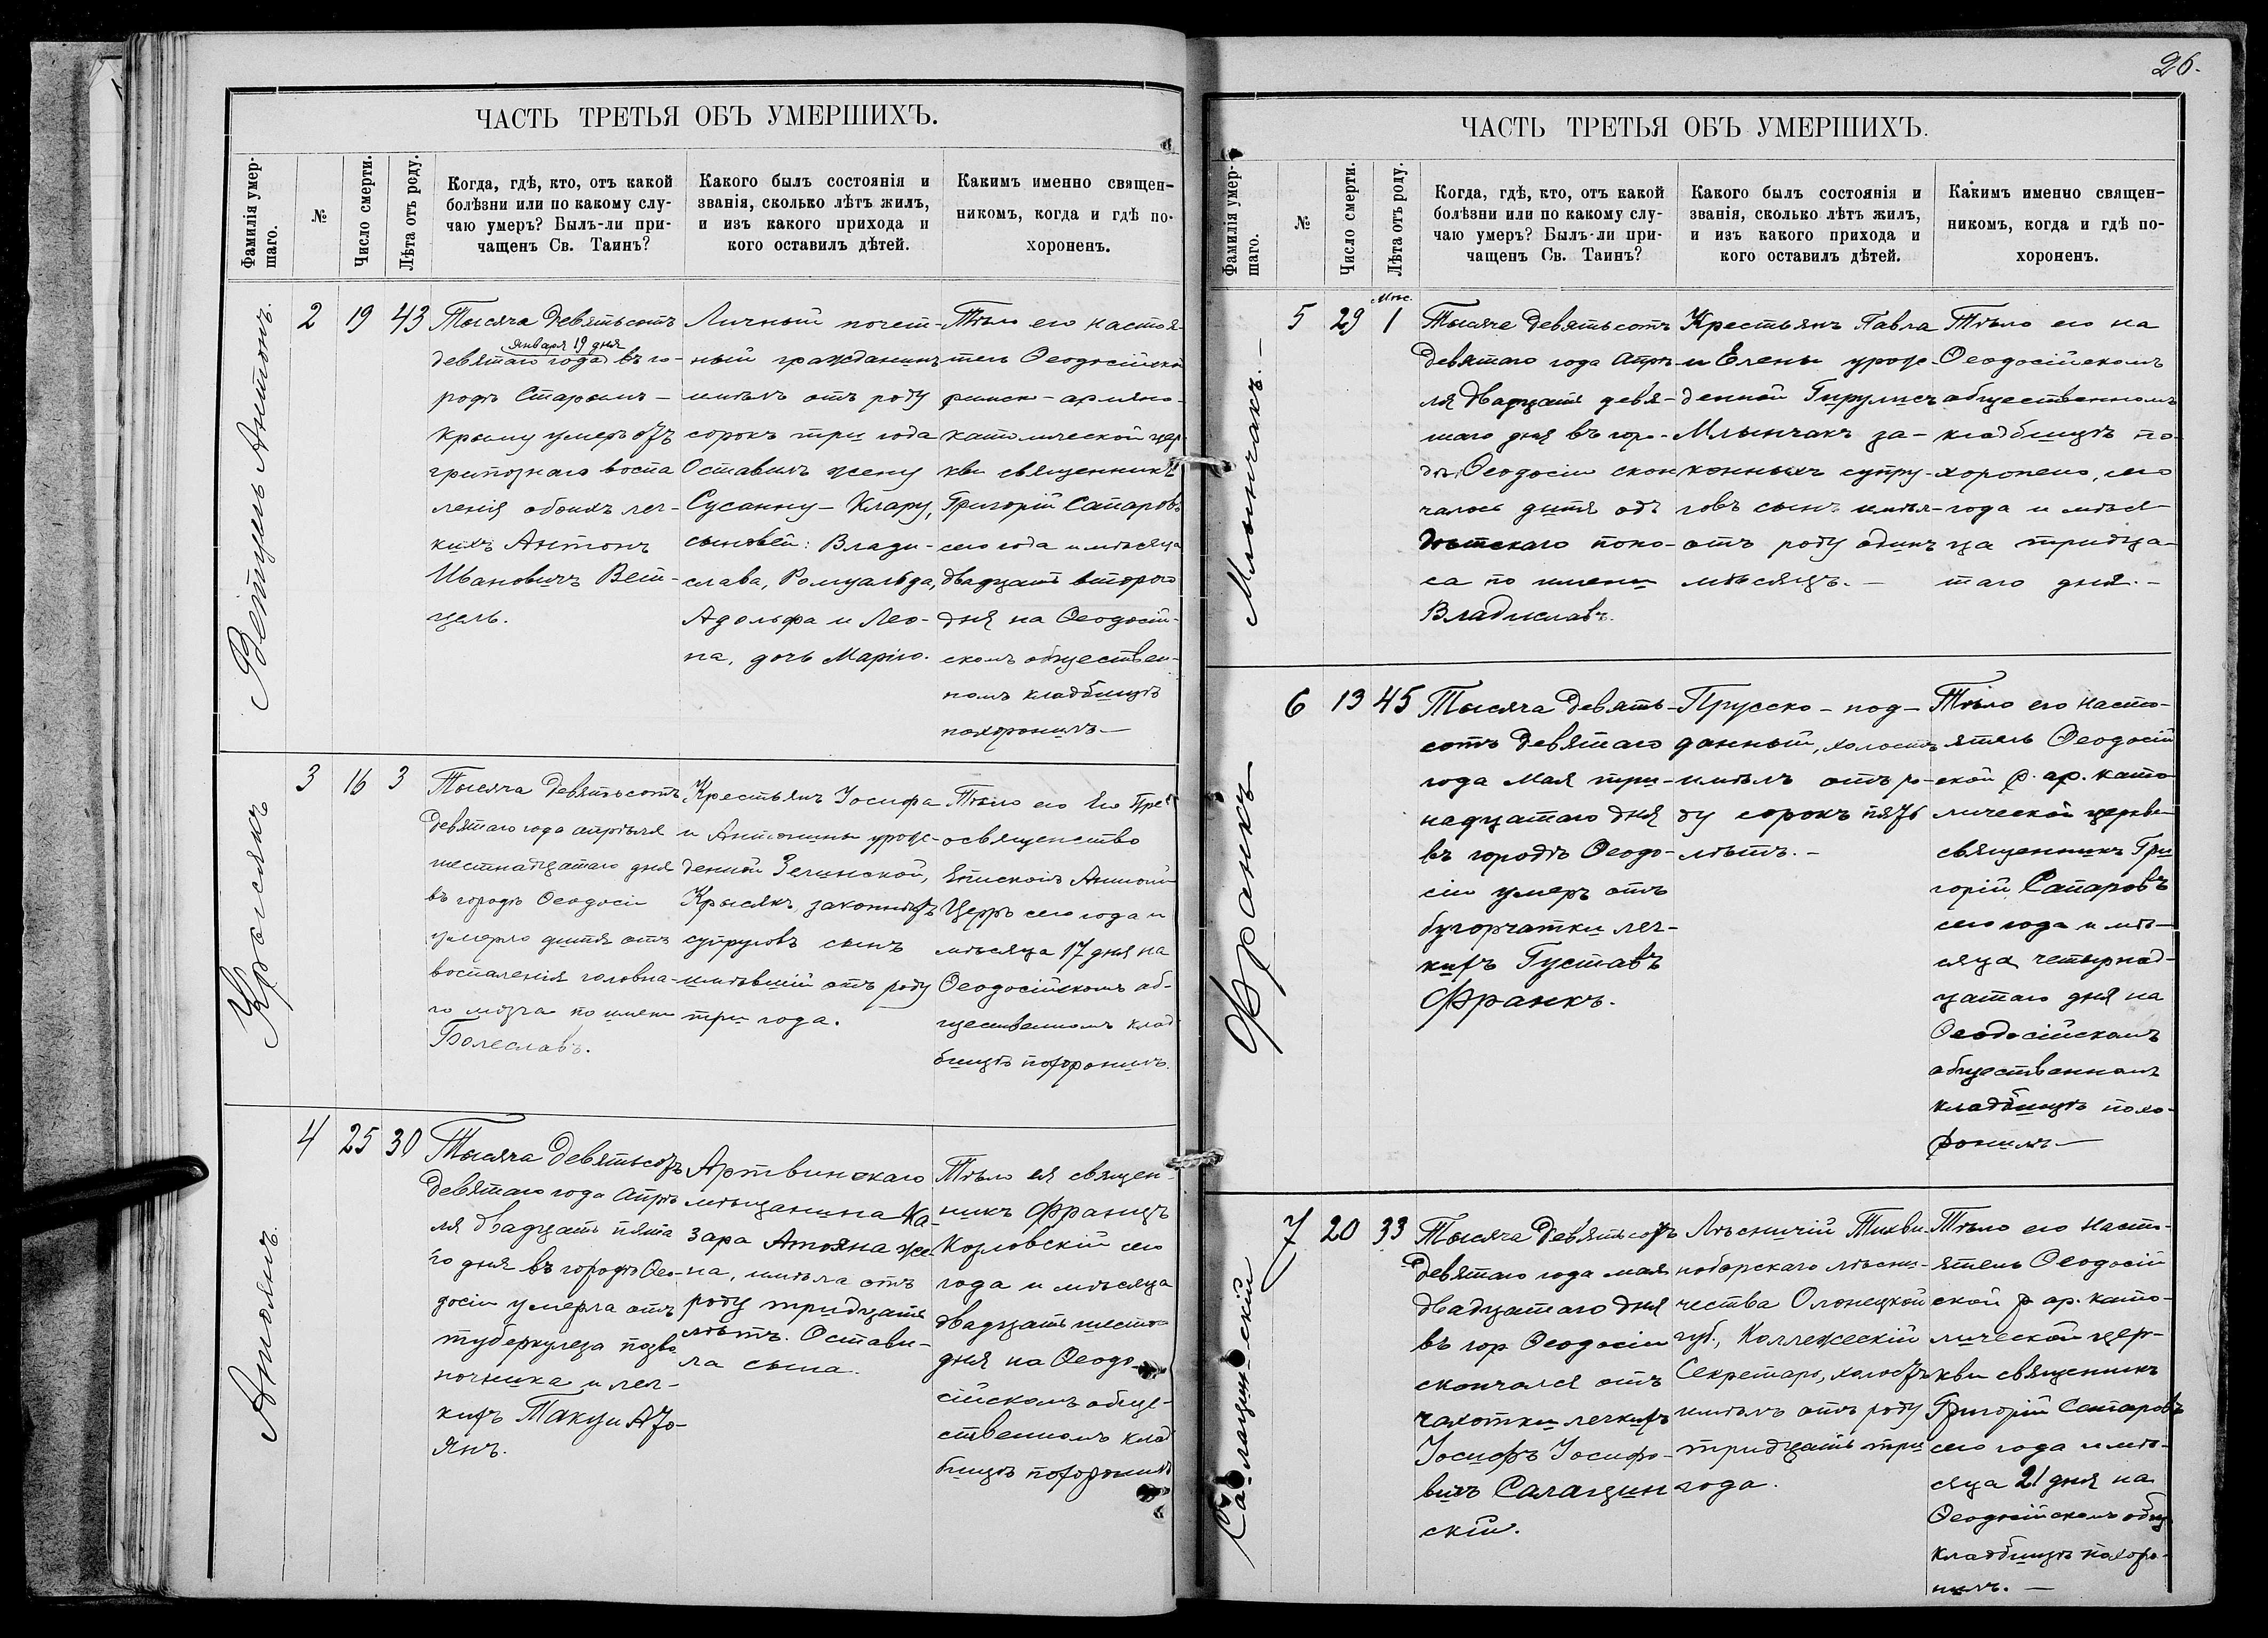 ЧАСТЬ ТРЕТЬЯ ОБЪ УМЕРШИХЪ.
Фамилія умер-
шаго.
№
Число смерти.
Лѣта отъ роду.
Когда, гдѣ, кто, отъ какой
болѣзни или по какому слу-
чаю умеръ? Былъ-ли при-
чащенъ Св. Таинъ?
Какого былъ состоянія и
званія, сколько лѣтъ жилъ,
и изъ какого прихода и
кого оставилъ дѣтей.
Какимъ именно священ-
никомъ, когда и гдѣ по-
хороненъ.
Ветцель Антонъ.
2
19
43
Тысяча девятьсотъ
января 19 дня
девятаго года въ го-
родѣ Старомъ-
Крыму умеръ отъ
грипознаго воспа
ленія обоихъ лег-
кихъ Антонъ
Ивановичъ Вет-
цель.
Личный почет-
ный гражданинъ
имѣлъ отъ роду
сорокъ три года
Оставилъ жену
Сусанну-Клару,
сыновей: Влади-
слава, Ромуальда,
Адольфа и Лео-
на, дочь Марію.
Тѣло его настоя-
тель Ѳеодосійской
римск-армяно-
католической цер
кви священникъ
Григорій Сапаровъ
сего года и мѣсяца
двадцать второго
дня на Ѳеодосій-
скомъ обществен-
номъ кладбищѣ
похоронилъ—
Крысякъ
3
16
3
Тысяча девятьсотъ
девятаго года апрѣля
шестнадцатаго дня
въ городѣ Ѳеодосіи
умерло дитя отъ
воспаленія головна-
го мозга по имени
Болеславъ.
Крестьянъ Іосифа
и Антонины урож-
денной Зелинской,
Крысякъ, законныхъ
супруговъ сынъ
имѣвшій отъ роду
три года.
Тѣло его Его Пре
освященство
Епископъ Антоній
Церръ сего года и
мѣсяца 17 дня на
Ѳеодосійскомъ об-
щественномъ клад
бищѣ похоронилъ.
Атоянъ.
4
25
30
Тысяча девятьсотъ
девятаго года Апрѣ
ля двадцать пята
го дня въ городѣ Ѳео-
досіи умерла отъ
туберкулеза позво
ночника и лег-
кихъ Такуи Ато-
янъ.
Артвинскаго
мѣщанина Ка-
зара Атояна же
на, имѣла отъ
роду тридцать
лѣтъ. Остави-
ла сына.
Тѣло ея священ-
никъ Францъ
Козловскій сего
года и мѣсяца
двадцать шесто
дня на Ѳеодо-
сійскомъ обще-
ственномъ клад
бищѣ похоронилъ
26.
ЧАСТЬ ТРЕТЬЯ ОБЪ УМЕРШИХЪ.
Фамилія умер-
шаго.
№
Число смерти.
Лѣта отъ роду.
Когда, гдѣ, кто, отъ какой
болѣзни или по какому слу-
чаю умеръ? Былъ-ли при-
чащенъ Св. Таинъ?
Какого былъ состоянія и
званія, сколько лѣтъ жилъ,
и изъ какого прихода и
кого оставилъ дѣтей.
Какимъ именно священ-
никомъ, когда и гдѣ по-
хороненъ.
Млынчакъ.—
5
29
Мѣс.
1
Тысяче девятьсотъ
девятаго года Апрѣ-
ля двадцать девя-
таго дня въ горо-
дѣ Ѳеодосіи скон
чалось дитя отъ
дѣтскаго
по имени
Владиславъ.
Крестьянъ Павла
и Елены урож-
денной
Млынчакъ за-
конныхъ супру-
говъ сынъ имѣя
отъ роду одинъ
мѣсяцъ.—
Тѣло его на
Ѳеодосійскомъ
общественномъ
кладбищѣ по-
хоронено, сего
года и мѣся-
ца тридца-
таго дня.—
Франкъ
6
13
45
Тысяча девять-
сотъ девятаго
года Мая три-
надцатаго дня
въ городѣ Ѳеодо-
сіи умеръ отъ
бугорчатки лег-
кихъ Густавъ
Франкъ.
Прусско-под-
данный, холостъ
имѣлъ отъ ро-
ду сорокъ пять
лѣтъ.—
Тѣло его насто-
ятель Ѳеодосій
ской р. ар. като
лической церкви
священникъ Гри
горій Сапаровъ
сего года и мѣ-
сяца четырнад-
цатаго дня на
Ѳеодосійскомъ
общественномъ
кладбищѣ похо-
ронилъ—
Салацинскій
7
20
33
Тысяча девятьсотъ
девятаго года мая
двадцатаго дня
въ гор. Ѳеодосіи
скончался отъ
чахотки легкихъ
Іосифъ Іосифо-
вичъ Салацин
скій.
Лѣсничій Тихви
ноборскаго лѣсни-
чества Олонецкой
губ., Коллежскій
Секретарь, холостъ
имѣлъ отъ роду
тридцать три
года.
Тѣло его Насто-
ятель Ѳеодосій
ской р. ар. като-
лической цер-
кви священникъ
Григорій Сапаровъ
сего года и мѣ-
сяца 21 дня на
Ѳеодосійскомъ общ
кладбищѣ похоро-
нилъ.—